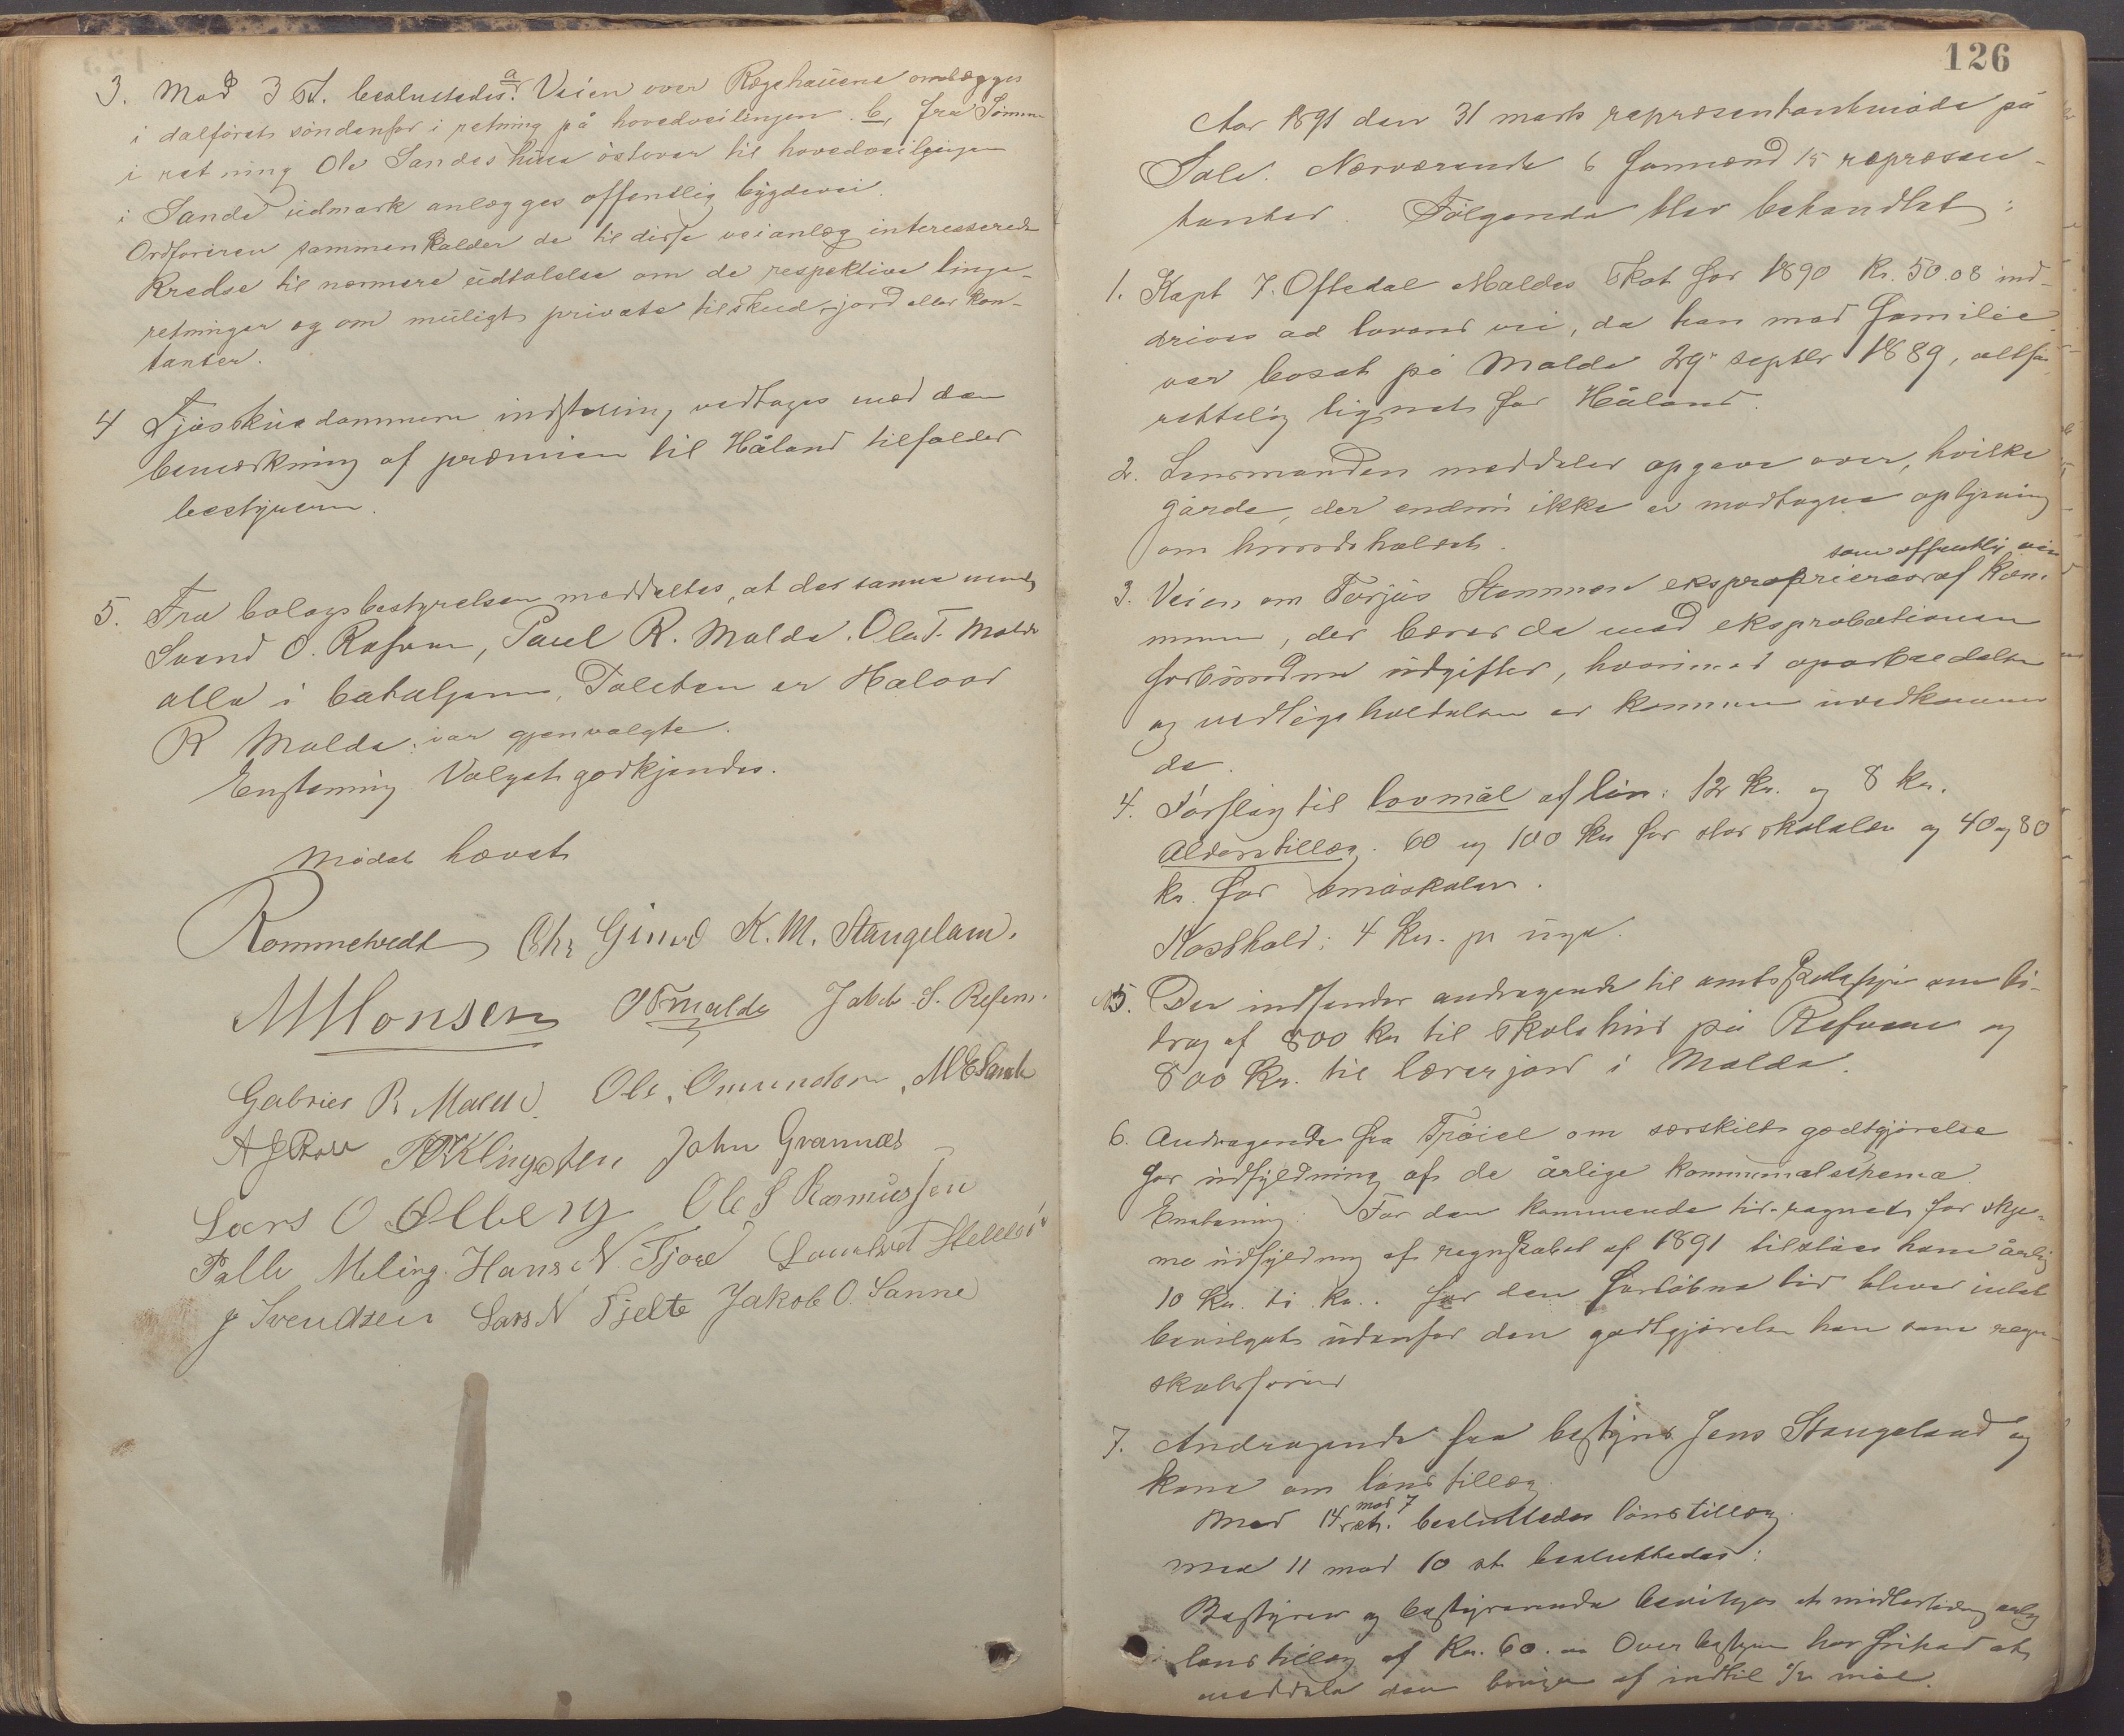 3. Mod 3 St. besluttedes: a Veien over Rægehauene omlægges
i dalføret søndenfor i retning på hovedveilinjen. b, fra Sømme
i retning Ole Sandes huse østover til hovedveilinjen
i Sande udmark anlægges offentlig bygdevei.
Ordføreren sammenkalder de til disse veianlæg interesserede
kredse til nærmere udtalelse om de respektive linje-
retninger og om muligt private tilskud, jord eller kon-
tanter.
4 Fjøsskuedommerne indstilling vedtages med den
bemærkning af præmien til Håland tilfalder
bestyreren.
5. Fra bolagsbestyrelsen meddeltes, at det samme
Svend O. Rafsum, Paul R. Malde. Ola T. Malde
alle i bataljonen, Toleten er Halvor
R Malde: var gjenvalgte.
Enstemmig Valget godkjendes.
Mødet hævet
Rommetvedt Chr Gimre K. M. Stangelam.
M Monsen O T Malde Jakob S. Refsn.
Gabriel R. Malde. Ole. Omundsen, M E Sande
A J Rott Klingsten John Grannæs
Lars O Ølberg Ole S Rasmussen
Palle Meling. Hans N. Tjore
J Svendsen Lars N Tjelte Jakob O. Sanne
126
Aar 1891 den 31 marts repræsentantmøde på
Sole. Nærværende 6 formænd 15 repræsen-
tanter. Følgende blev behandlet:
1. Kapt 7. Oftedal Maldes skat for 1890 Kr. 50.08 ind-
drives ad lovens vei, da han med familie
var bosat på Malde 29. septbr 1889, altså
rettelig lignet for Håland.
2. Lensmanden meddeles opgave over, hvilke
gårde, der endnu ikke er modtagne oplysning
om hundehaldet.
som offentlig vei
3. Veien om Torjus Stemmen eksproprieres af kom-
munen, der bærer de med eksprobationen
forbundne udgifter, hvorimod oparbeidelsen
og vedligeholdelsen er kommunen uvedkommen
de.
4. Forslag til lovmål af løn: 12 kr. og 8 kr.
Alderstillæg. 60 og 100 kr for stor skolelær og 40 og 80
kr. for småskolen.
Kosthold: 4 kr. pr uge.
5. Der indsendes andragende til amtsskolestyre om bi-
drag af 800 kr til skolehus på Refsum og
800 kr. til lærerjord i Malde.
6. Andragende fra Trøiel om særskilt godtgjørelse
for udfyldning af de årlige kommunalschema.
Enstemmig: For den kommende tid regnet, for skje-
ma udfyldning af regnskabet af 1891 tilståes ham årlig
10 kr. ti kr.. For den forløbne tid bliver intet
bevilget udenfor den godtgjørelse han som regn-
skabsfører
7. Andragende fra bestyrer Jens Stangeland og
kone om lønstillæg.
Med 14 mod 7 st. besluttedes lønstillæg.
med 11 mod 10 st besluttedes:
Bestyrer og bestyrerinde bevilges et midlertidig årlig
lønstillæg af Kr. 60. Overbestyren har frihed at
meddele dem brugen af indtil 1/2 mål.